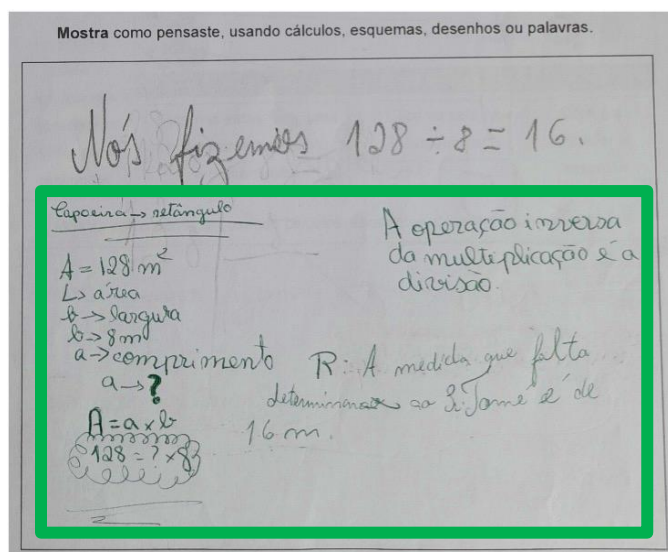 Mostra como pensaste, usando cálculos, esquemas, desenhos ou palavras.
Nós fizemos 128 ÷ 8 = 16.
Capoeira → retângulo
A = 128 m²
↳ área
b → largura
b → 8m
a → comprimento
a → ?
A = a x b
128 = ? x 8
A operação inversa
da multiplicação é a
divisão.
R: A medida que falta
determinar ao Sr. Tomé é de
16 m.